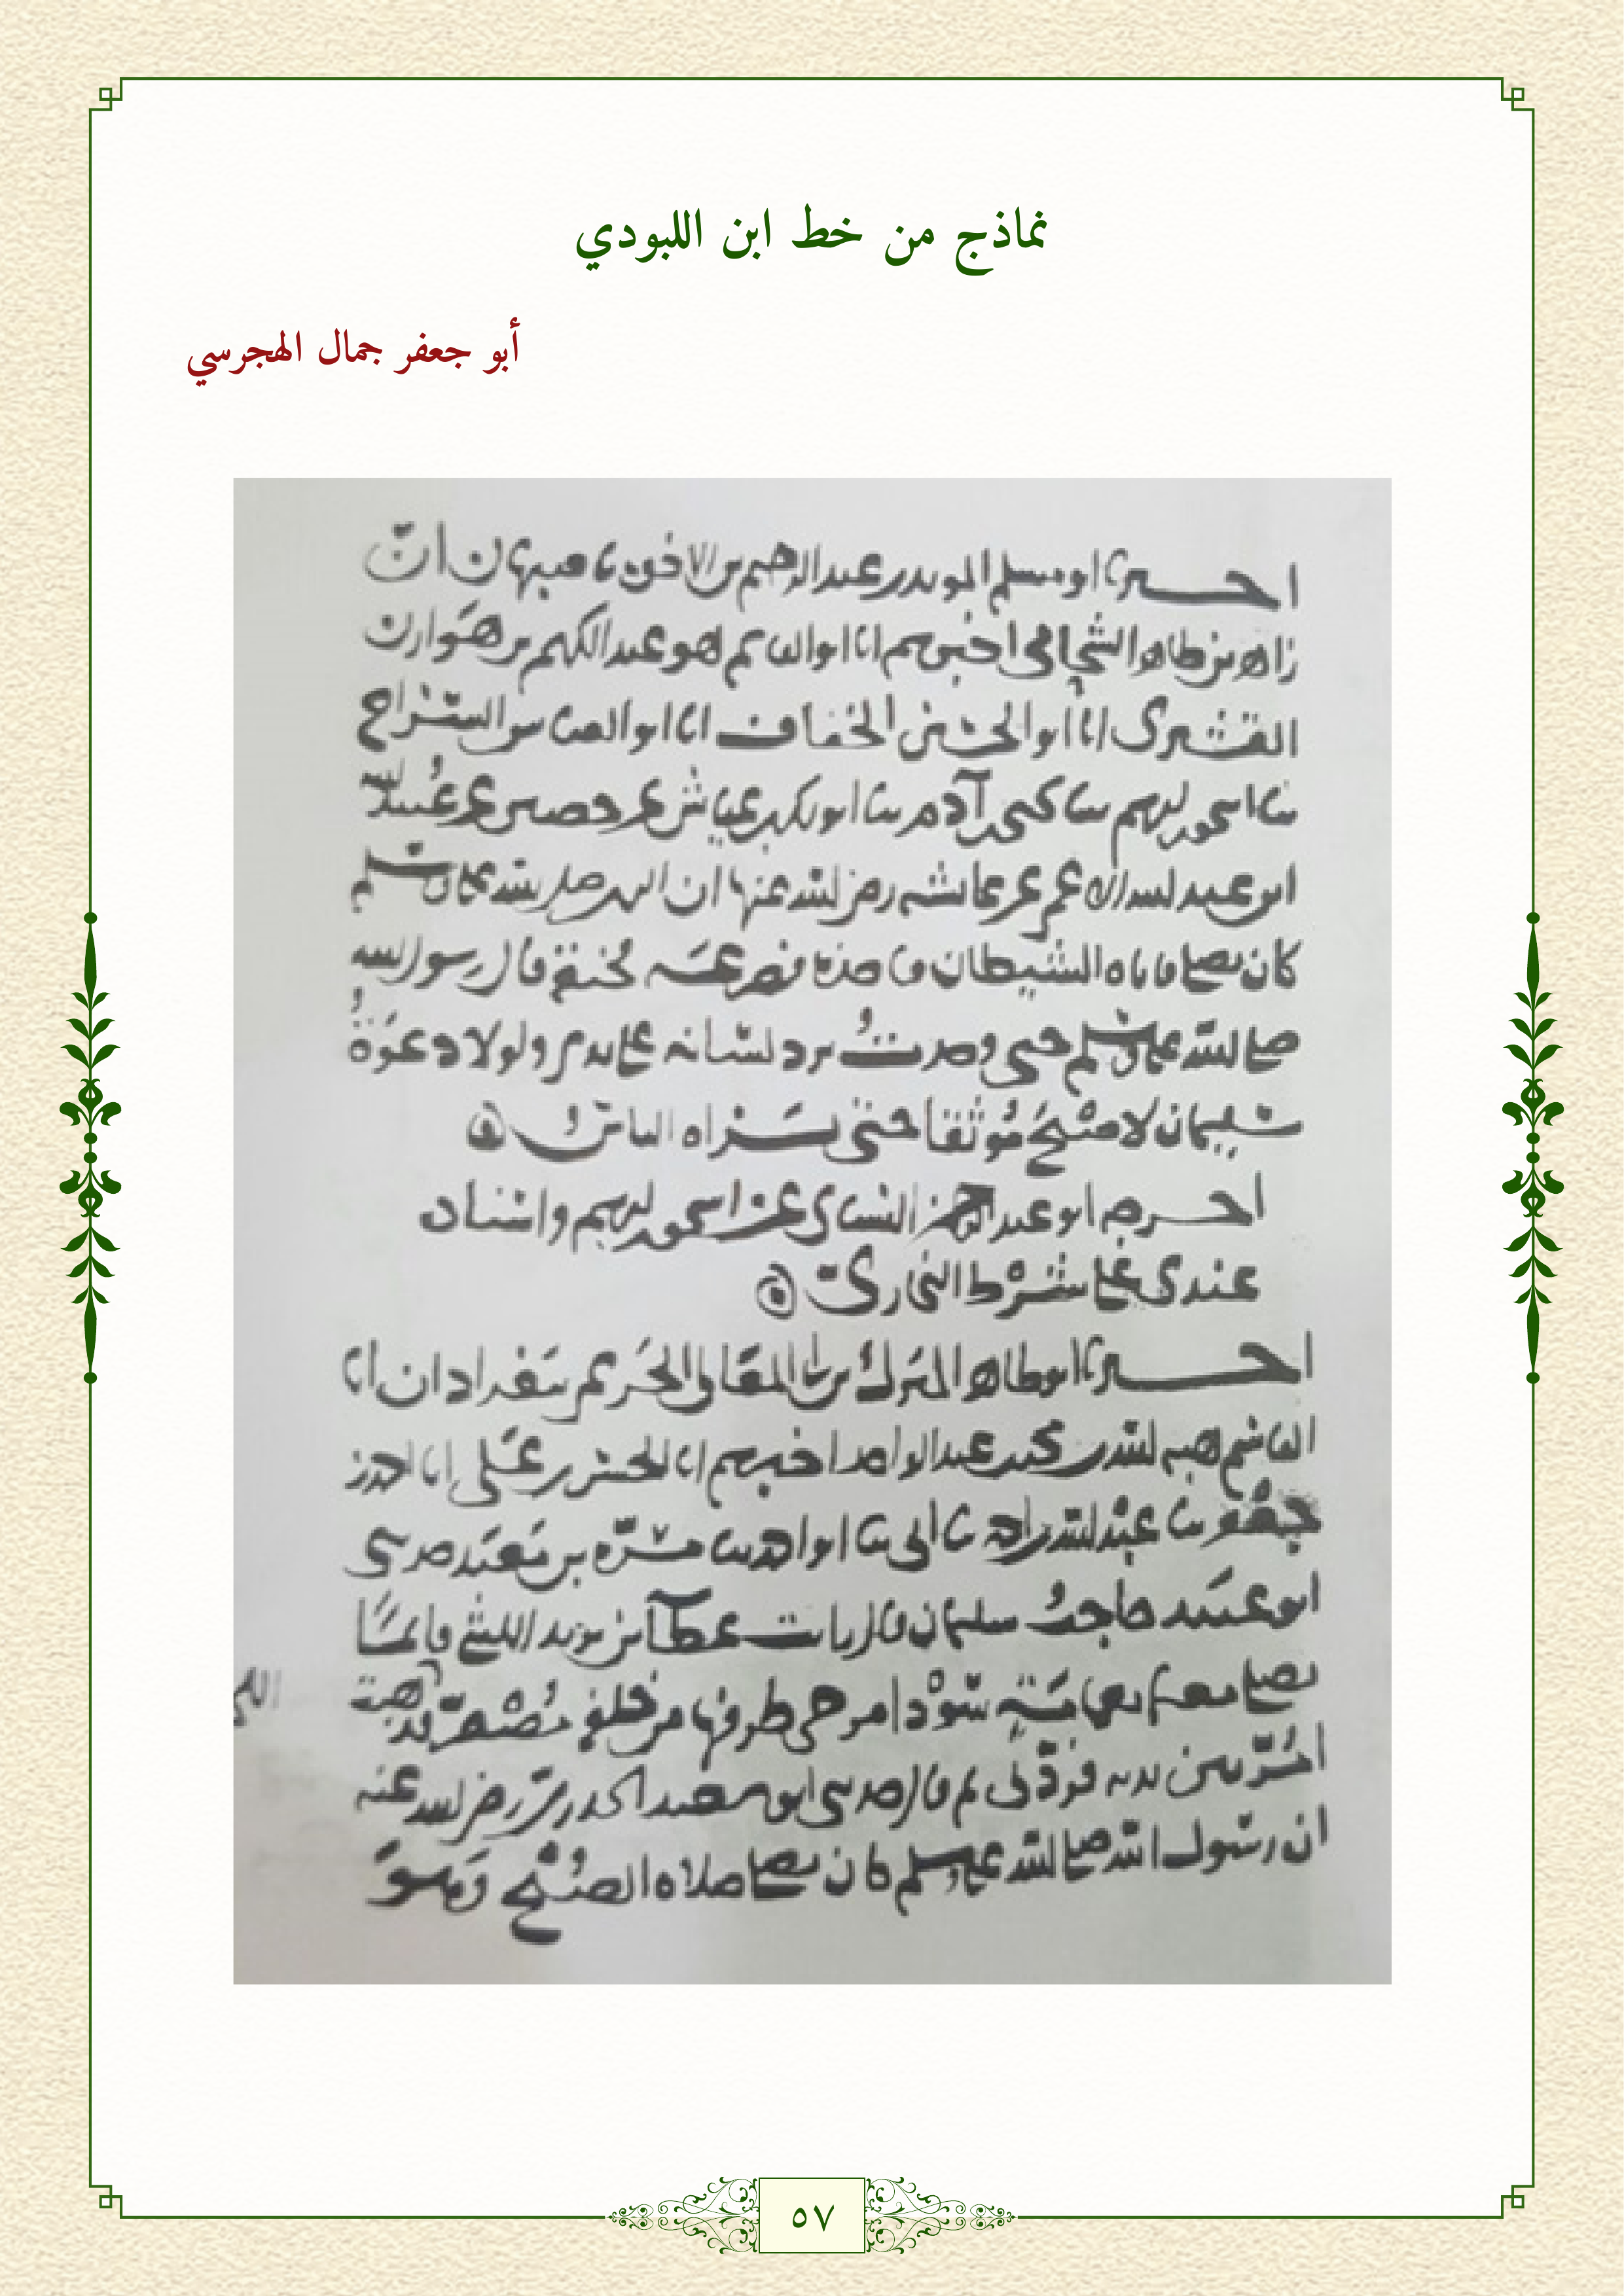 نماذج من خط ابن اللبودي
أبو جعفر جمال الهجرسي
اخبرنا ابو مسلم المويد بن عبد الرحيم بن الاخوة باصبهان انّ
زاهر بن طاهر الشحامي اخبرهم انا ابو القاسم هو عبد الكريم بن هوازن
القشيري انا ابو الحسين الخفاف انا ابو العباس السراج
ثنا اسحق بن ابرهيم ثنا يحيى بن آدم ثنا ابو بكر بن عياش عن حصين عن عبيد الله
بن عبد الله عن عائشه رضي الله عنها ان النبي صلى الله عليه وسلم
كان يصلي فاتاه الشيطان فاخذه فصرعه فخنقه قال رسول الله
صلى الله عليه وسلم حتى وجدت برد لسانه على يدي ولولا دعوة
سليمان لاصبح موثقا حتى يراه الناس
اخرجه ابو عبد الرحمن النسائي عن اسحق بن ابرهيم واسناده
عندي على شرط البخاري
اخبرنا ابو طاهر المبارك بن المعالي الحريم ببغداد ان ابا
القاسم هبه الله بن محمد بن عبد الواحد اخبرهم انا الحسن بن علي انا احمد بن
جعفر ثنا عبد الله بن احمد ثنا ابي ثنا ابو احمد ثنا مسرّه بن معبد حدثني
ابو عبيد حاجب سليمان قال رايت عطاء بن يزيد الليثي قائما
يصلي معتم بعمامة سودا مرخي طرفها من خلف مصفر اللحية
امُرّ بين يديه فردّني ثم قال حدثني ابو سعيد الخدري رضي الله عنه
ان رسول الله صلى الله عليه وسلم كان يصلي صلاه الصبح وهو
٥٧